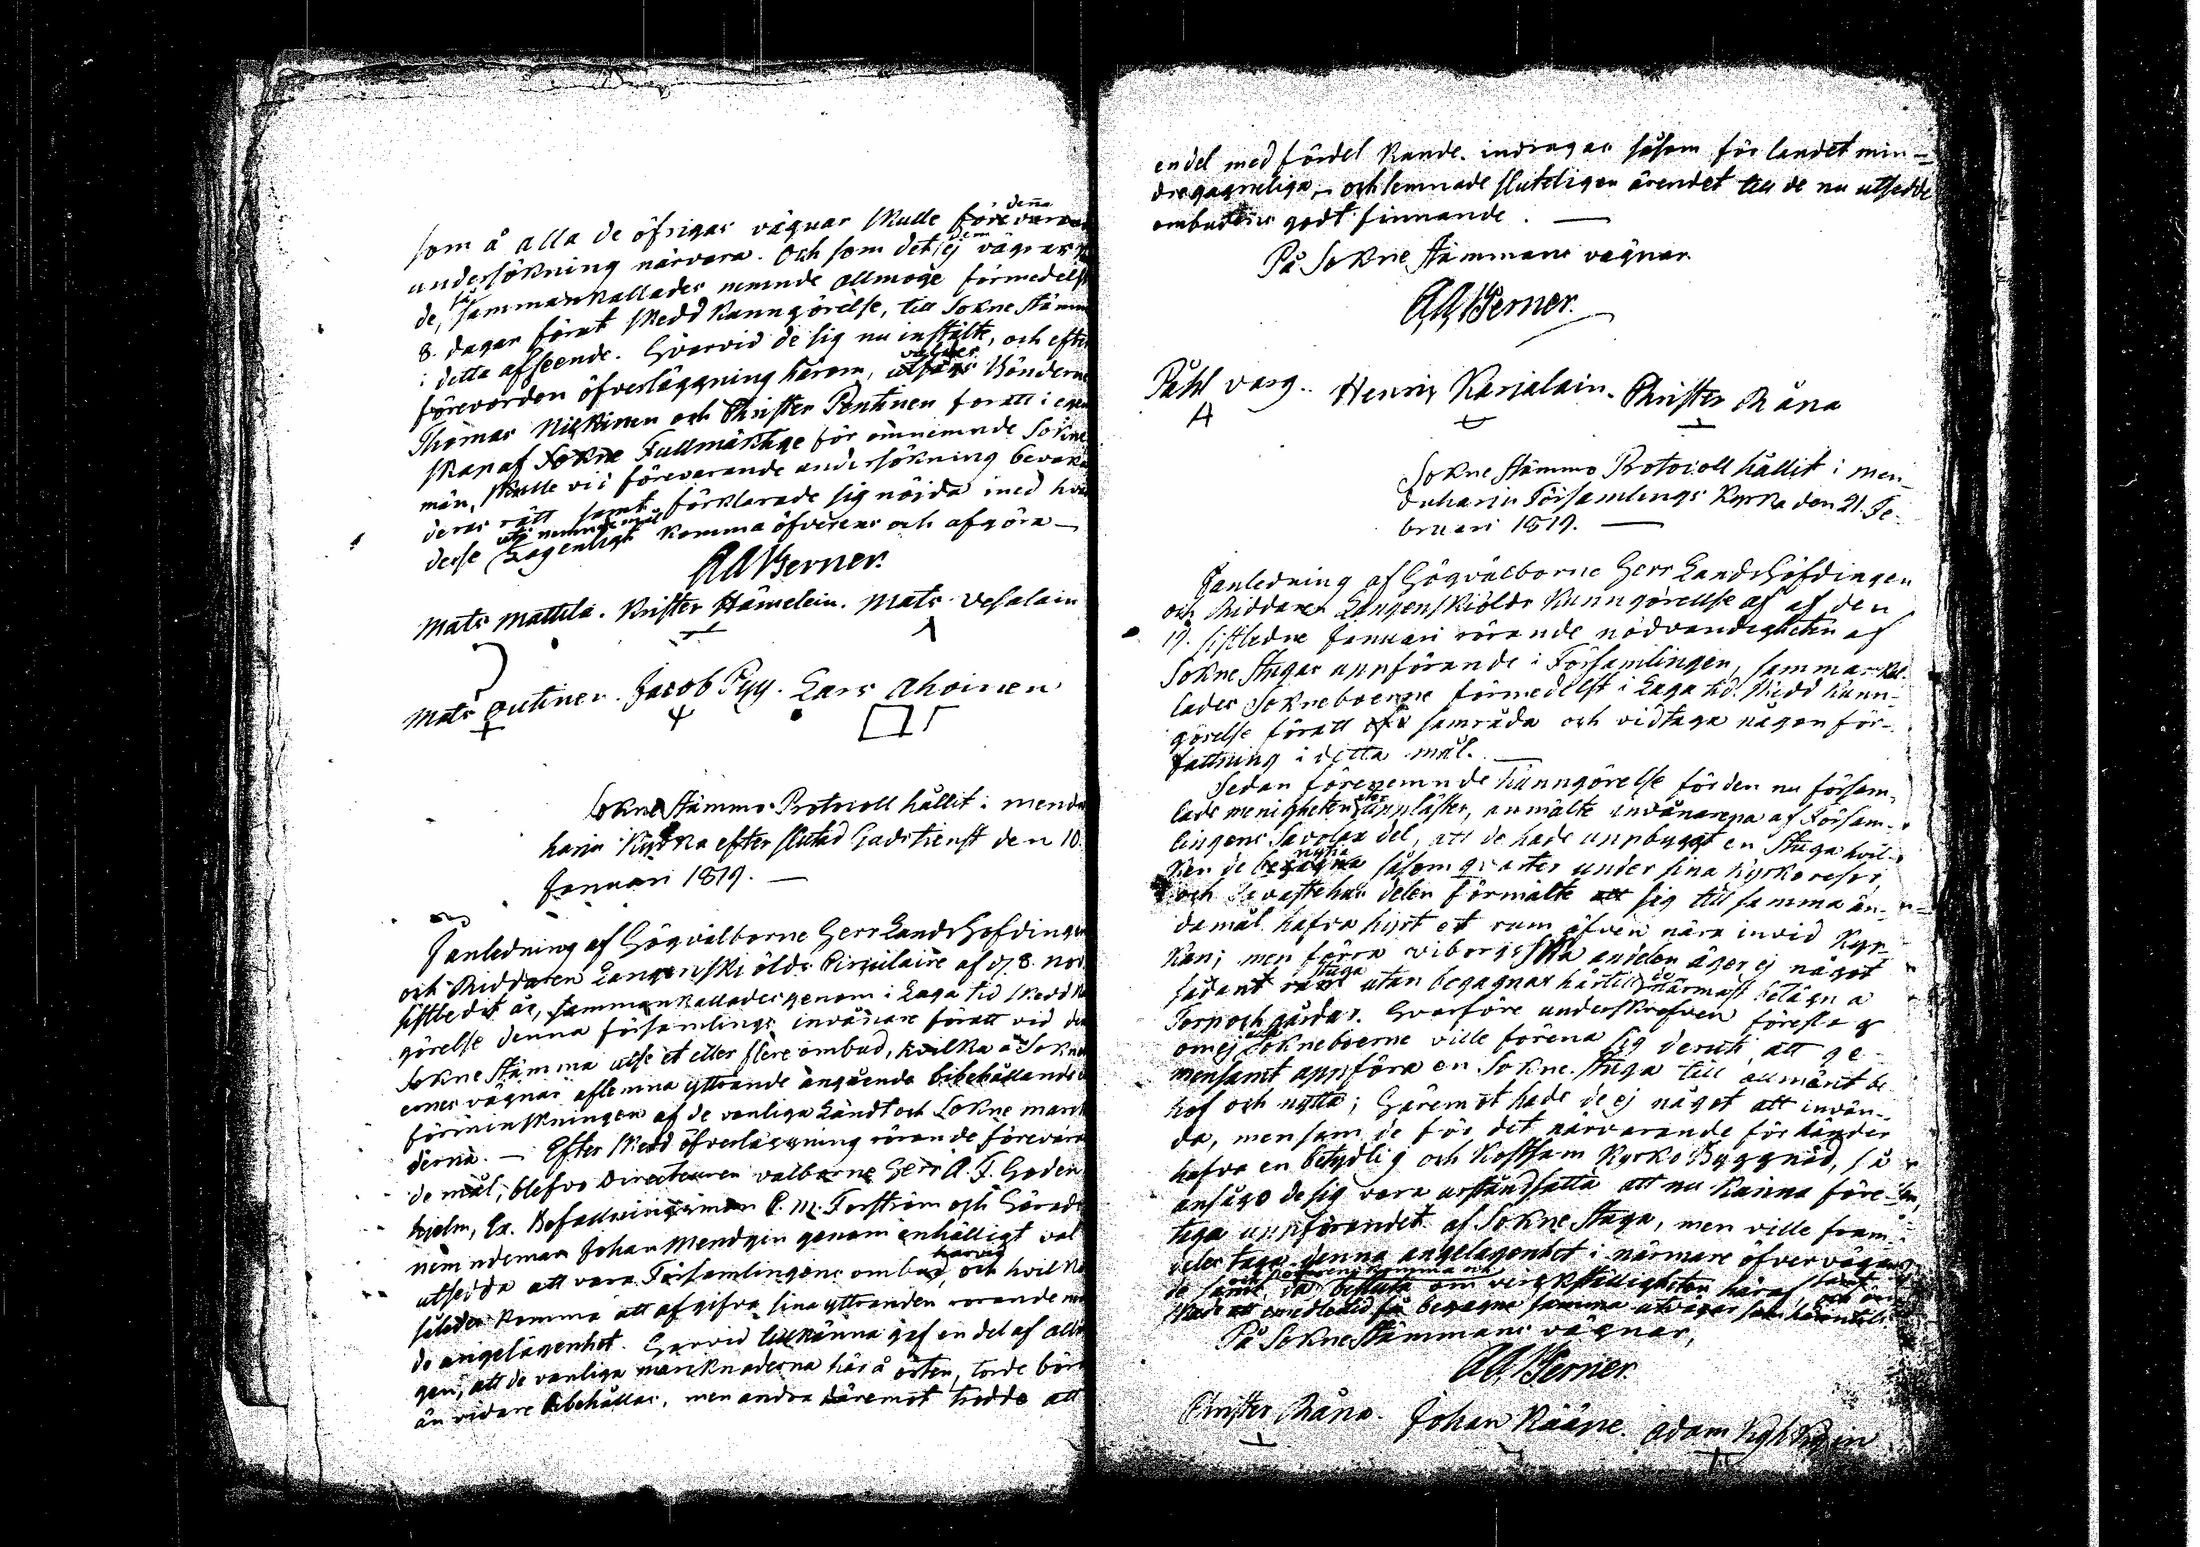 som å alla de öfrigas vägnar skulle denna
undersökning närvara. Och som det ej dem vägras
de, så sammankallades nemnde allmoge förmedelst
8. dagar förut skedd kunngörelse, till Sokne Stäm
i detta afseende. Hvarvid de sig nu instälte, och efter
förevorden öfverläggning härom, valdes Bönderne
Thomas Nickinen och Christer Pentinen för att i egen
skap af Sokne Fullmäktige för omnemnde Sokne
män, skulle vid förevarande undersökning bevaka
deras rätt samt förklarade sig nöjda med hvad
desse uti nemnde mål Lagenligt komma öfverens och afgöra —
A A Berner.
Mats Mattila. Krister Hämelein. Mats Vesalain
Mats Outinen. Jacob Pyy. Lars Ahoinen
Sokne Stämmo Protocoll hållit i Mendu
harju Kyrka efter slutad Gudstienst den 10.
Januari 1819. —
I anledning af Högvälborne Herr Landshöfdingen
och Riddaren Langenskiölds Circulaire af d. 8. Nov.
sistledit år, sammankallades genom i Laga tid skedd k
görelse denna församlings invånare för att vid de
Sokne Stämma utse et eller flere ombud, hvilka å Sokne
ernes vägnar aflemna yttrande angående bibehållande
förminskningen af de vanliga Landt och Sokne mark
derna. — Efter skedd öfverläggning rörande förevaran
de mål, blefvo Directeuren välborne Herr A. F. Goden
hjelm, Ex. Befallningsman C. M. Forsström och Härads
nemndeman Johan Mendgin genom enhälligt val
utsedda att vara Församlingens ombud härvid, och hvilka
således komma att afgifva sina yttranden rörande
de angelägenhet. Härvid tillkänna gaf en del af allmo
gen, att de vanliga marcknaderna här å orten, torde böra
än vidare bibehållas, men andra däremot trodde att
en del med fördel kunde indragas såsom för landet min-
dre gagneliga, och lemnade sluteligen ärendet till de nu utsedde
ombudens godt finnande. —
På Sokne Stämmans vägnar
A A Berner.
Påhl Varg. Henric Karjalain. Christer Råna
Sokne Stämmo Protocoll hållit i Men-
duharju Församlings Kyrka den 21. Fe-
bruari 1819. —
I anledning af Högvälborne Herr Landshöfdingen
och Riddaren Langenskiölds kunngörellse af af den
19. sistledne Januari rörande nödvändigheten af
Sokne Stugas uppförande i Församlingen, samman kal-
lades Sokneboerne förmedelst i Laga tid skedd kunn-
görelse för att samråda och vidtaga någon för-
fattning i detta mål. —
Sedan förenemnde kunngörelse för den nu försam-
lade menigheten uppläster, anmälte invånarena af Försam-
lingens Savolax del, att de hade uppbyggt en Stuga hvil-
ken de nyttja såsom qvarter under sina kyrkoresor,
och Tavastehus delen förmälte sig till samma än-
damål hafva hyrt et rum äfven nära invid Kyr-
kan; men förra Viborgska andelen äger ej något
sådant stuga utan begagnar härtill de närmast belägna
Torp och gårdar. Hvarföre underskrefven föreslog
om ej Sokneboerne ville förena sig deruti, att ge-
mensamt uppföra en Sokne Stuga till allmänt be-
hof och nytta; Häremot hade de ej något att invän-
da, men som de för det närvarande för händer
hafva en betydlig och kostsam Kyrko Byggnad, så
ansågo de sig vara urståndsatta att nu kunna före-
taga uppförandet af Sokne Stuga, men ville fram-
deles taga denna angelägenhet i närmare öfvervägan
de samt då besluta om verckställigheten häraf,
begagna samma utvägar som
På Sokne Stämmans vägnar,
A A Berner.
Christer Råna. Johan Kääpe. Adam